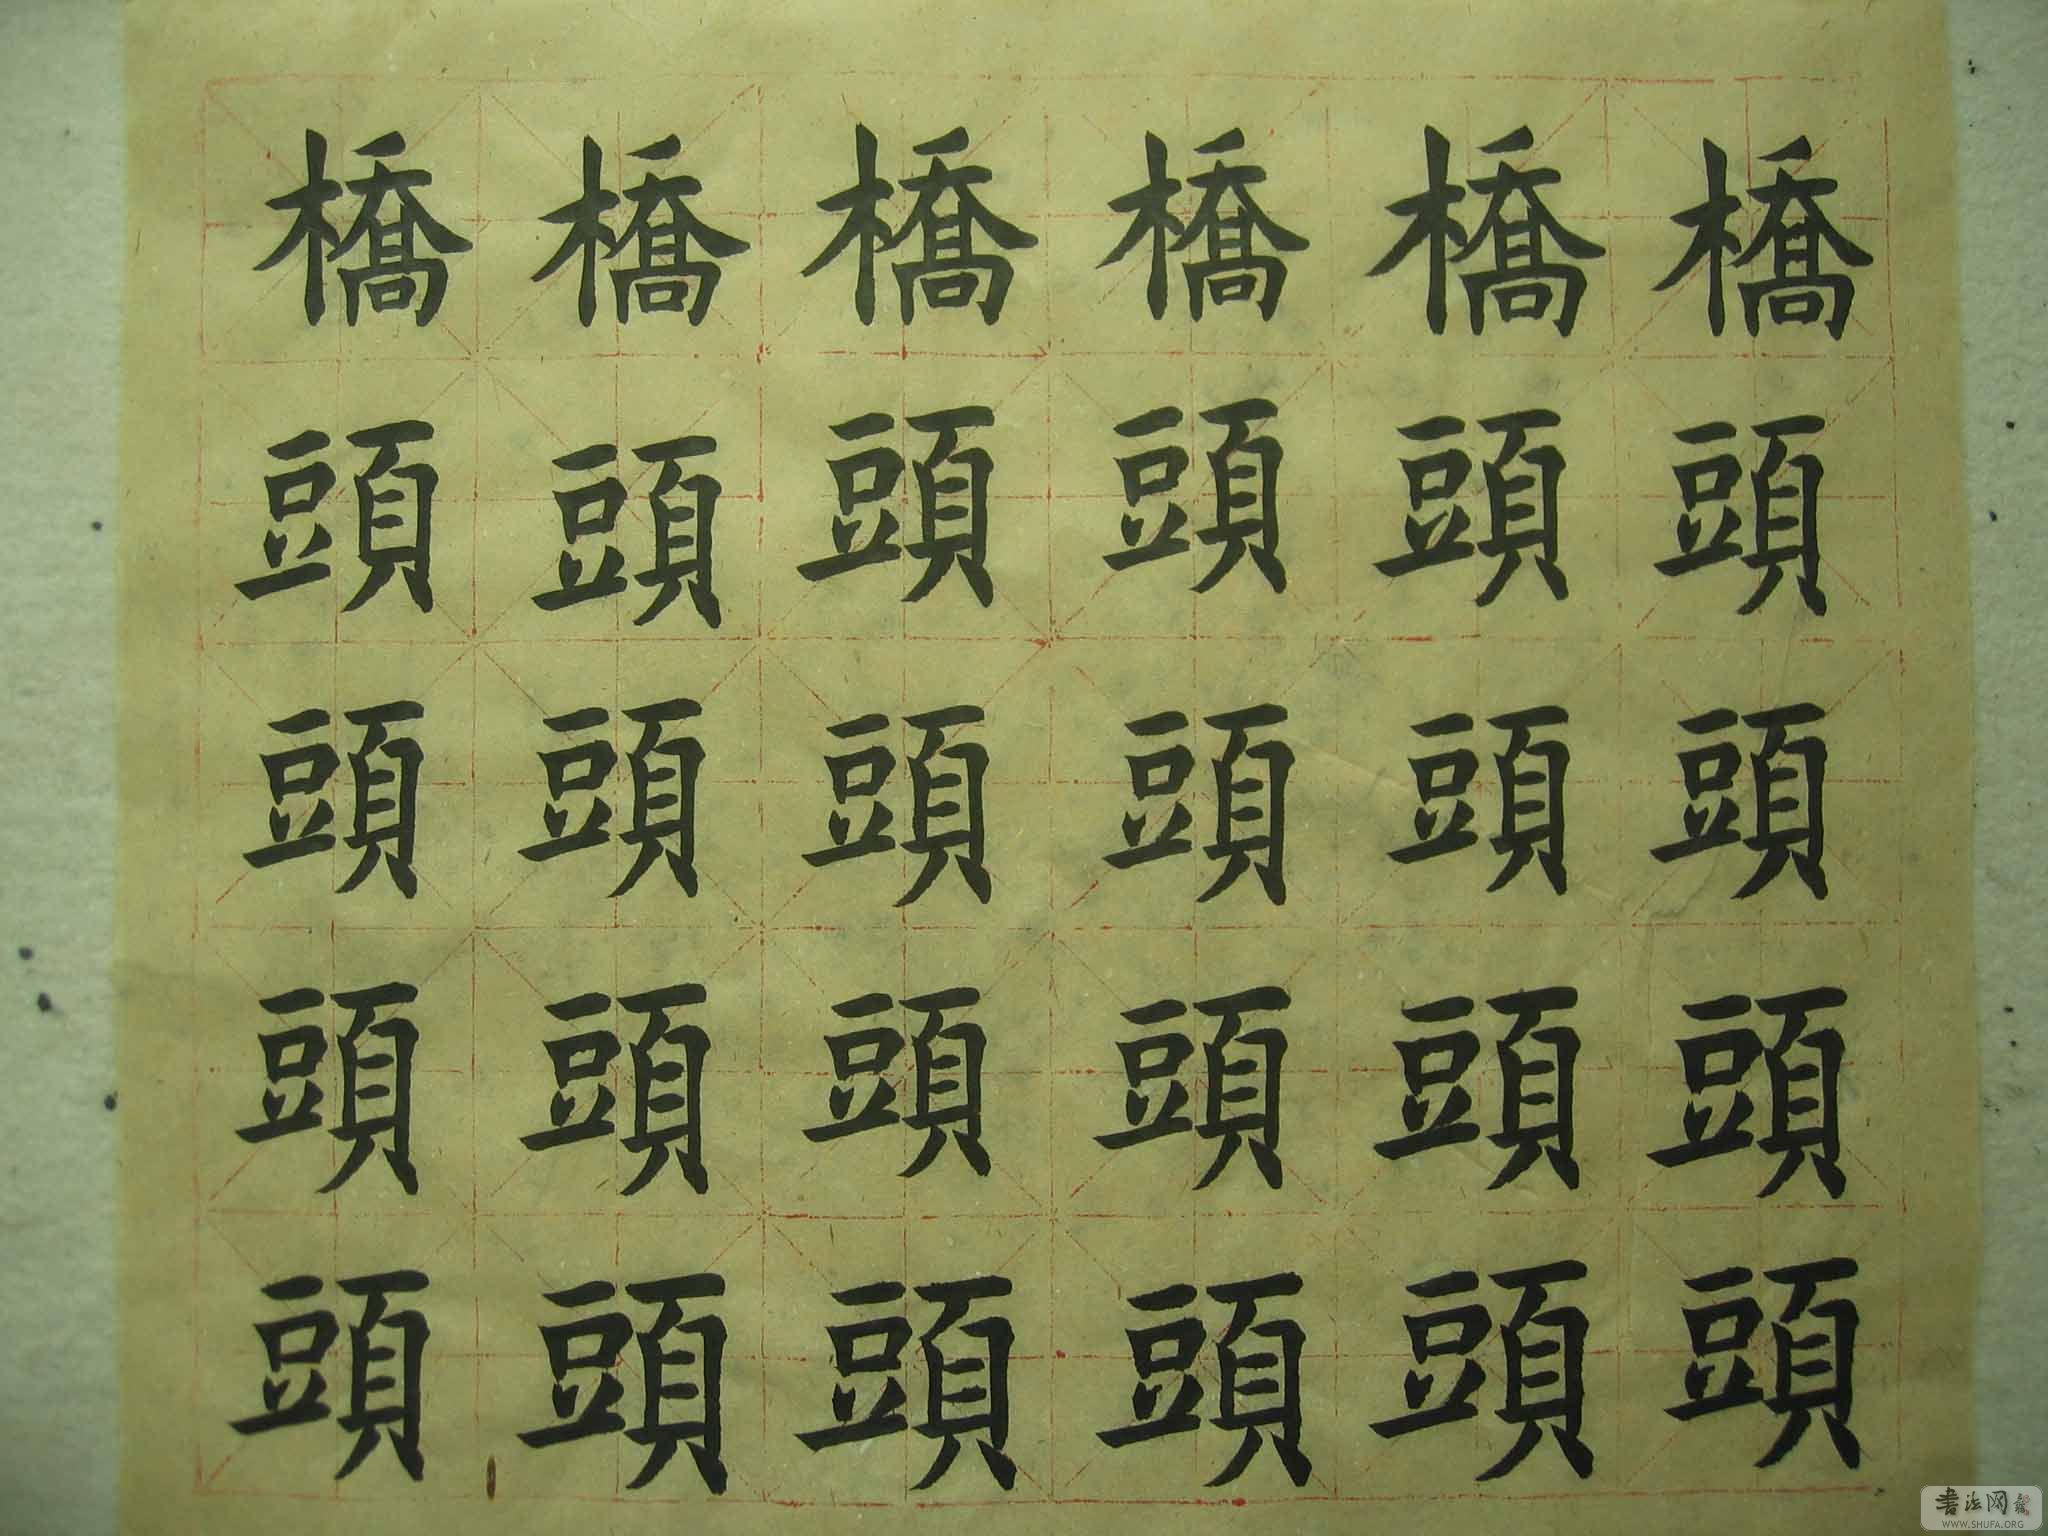 橋橋橋橋橋橋
頭頭頭頭頭頭
頭頭頭頭頭頭
頭頭頭頭頭頭
頭頭頭頭頭頭
书法网
WWW.SHUFA.ORG